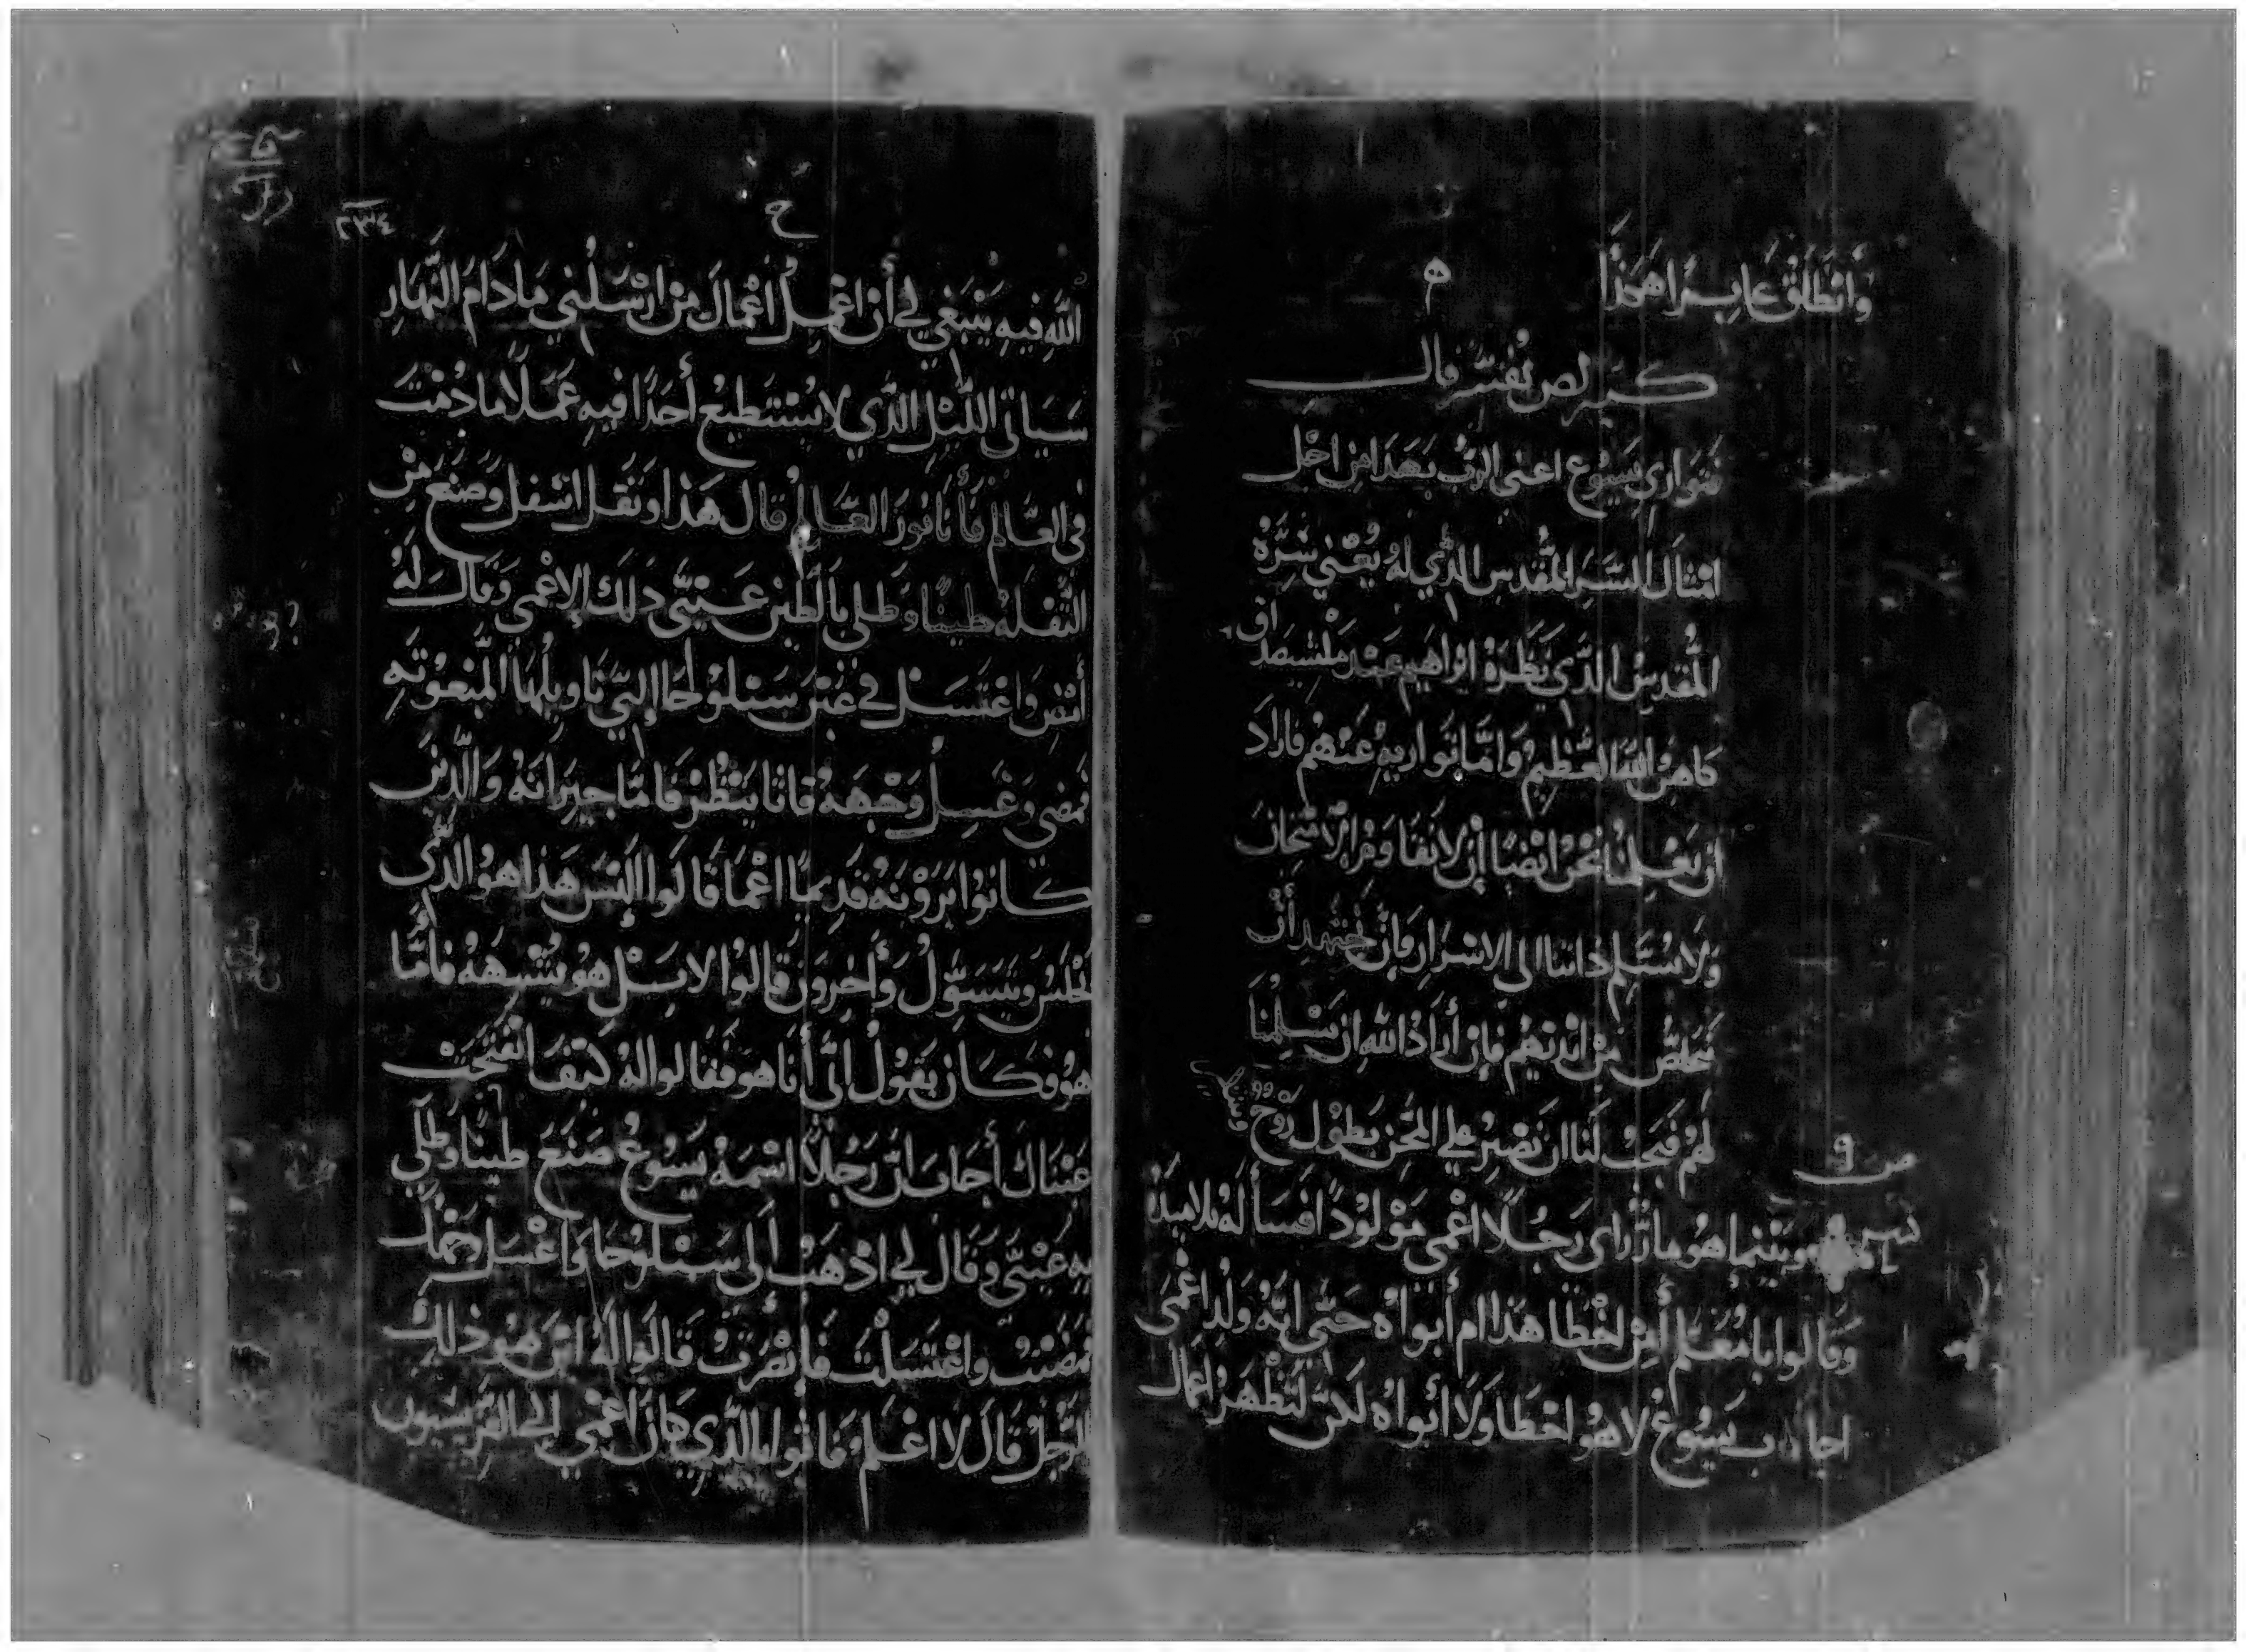 وَانطَلَقَ عابِرًا هَكذَا
ه
كيرلص يُفسّر قال
تواري يَسُوع اعني الرب بهَذا من اجل
امتثال السّر المقدس الذي لهُ يُعْني سَرّهُ
المُقدس الذّي نَظَرهُ ابراهيم عند ملتسصداق
كاهنُ اللّه العَظيمُ وَامّا تواريهِ عَنهُم فارَاد
ان يعَلمنا نحنُ ايضًا ان لا نقاوم الامتحان
وَلا نُسَلم ذاتنا الى الاشرار وَان نجتهد ان
نتخلصُ من ايديهُم فان أرَادَ اللّه ان يسَلِمنَا
لهُم فيجبُ لنا ان نَصْبرُ على المحَن بطول رُوُح
ص ٩
وبَينما هُو مارًّا رأى رَجُلاً اعْمى مَوْلودًا فسَأله تلاميذهُ
وَقالوا يا مُعَلم أمن اخْطَا هَذا ام أبَواهُ حَتّى انّهُ ولدَ اعْمَى
اجاب يَسُوعُ لا هُو اخْطَا وَلا أبواهُ لكن لتظْهَرُ اعمال
ح
٢٣٤
اللّه فيهِ يَنْبَغي لي أن اعْمِلُ اعْمالَ من ارْسَلُني مَا دَامَ النّهَار
سَيَاتي اللّيْل الذّي لا يسْتَطيعُ أحَدًا فيهِ عَمَلاً ما دُمْتَ
في العَالم فأنا نُورَ العَالم قال هَذا وتفَل اسْفل وَصَنعَ مِنْ
التّفلهُ طينًا وَطلى بالطين عَينَيّ ذلكَ الاعْمى وَقالَ لهُ
أمْضِ وَاغتَسَل في عَين سَيلوُحَا التيّ تاويلهَا المبَعُوُثه
فمضى وَغسِلُ وَجْهَهُ فاتا ينظُرْ فَامّا جيرَانهُ وَالّذين
كانوُا يَرَوْنهُ قديمًا اعْمَا قالوا اليْسَ هَذا هوُ الذّي
يَجْلسُ وَيتَسَوّلُ وَأخِروُن قالوُا لا بَلْ هُو يُشْبِههُ فأمّا
هُو فكان يَقوُلُ انّي أنا هو فقالوا لهُ كيْفَ انْفَتَحَتْ
عَيْناك أجَابَ انّ رَجُلاً اسْمهُ يَسُوعُ صَنعَ طينًا وَطلى
بِهِ عَينَيّ وَقال لي اذْهَبُ الى سَيْلوُحَا وَاغْسل وَجْهَكَ
فمضَيْتُ وَاغتَسَلتُ فأبْصَرتُ قالوا لهُ اين هُوَ ذلِكَ
الرّجُلُ قال لا اعْلم فاتوا بالذّي كان اعْمى الى الفرّيسيون